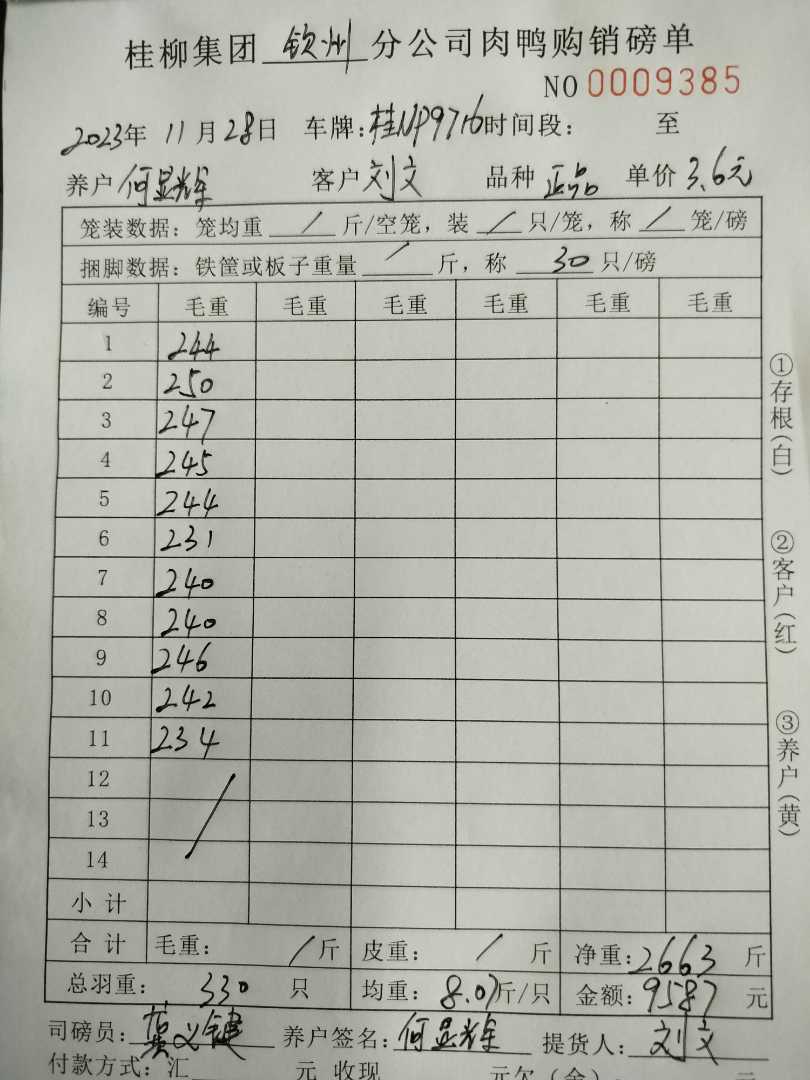 桂柳集团 钦州 分公司肉鸭购销磅单
NO 0009385
2023年 11月28日 车牌:桂NP9716时间段: 至
养户 何显辉 客户 刘文 品种 正品 单价 3.6元
笼装数据: 笼均重 / 斤/空笼, 装 / 只/笼, 称 / 笼/磅
捆脚数据: 铁筐或板子重量 / 斤, 称 30 只/磅
编号 毛重 毛重 毛重 毛重 毛重 毛重
1 244
2 250
3 247
4 245
5 244
6 231
7 240
8 240
9 246
10 242
11 234
12
13
14
小 计
合 计 毛重: / 斤 皮重: / 斤 净重:2663 斤
总羽重: 330 只 均重: 8.07斤/只 金额:9587 元
司磅员: 义键 养户签名: 何显辉 提货人: 刘文
付款方式: 汇 元 收现 元欠(余) 元
①存根(白)
②客户(红)
③养户(黄)